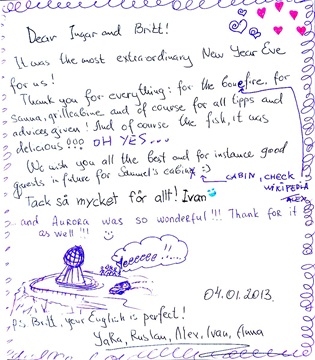 Dear Ingar and Britt!
It was the most extraordinary New Year Eve
for us!
Thank you for everything: for the bonefire, for
sauna, grillcabine and of course for all tipps and
advices given! And of course the fish, it was
delicious!!! OH YES...
We wish you all the best and for instance good
guests in future for Samuel's cabin :)
CABIN, CHECK
WIKIPEDIA
ALEX
Tack så mycket för allt! Ivan
and AURORA was so wonderful!!! Thank for it
as well!!!
04.01.2013
P.s Britt, your English is perfect!
Yara, Ruslan, Alex, Ivan, Anna